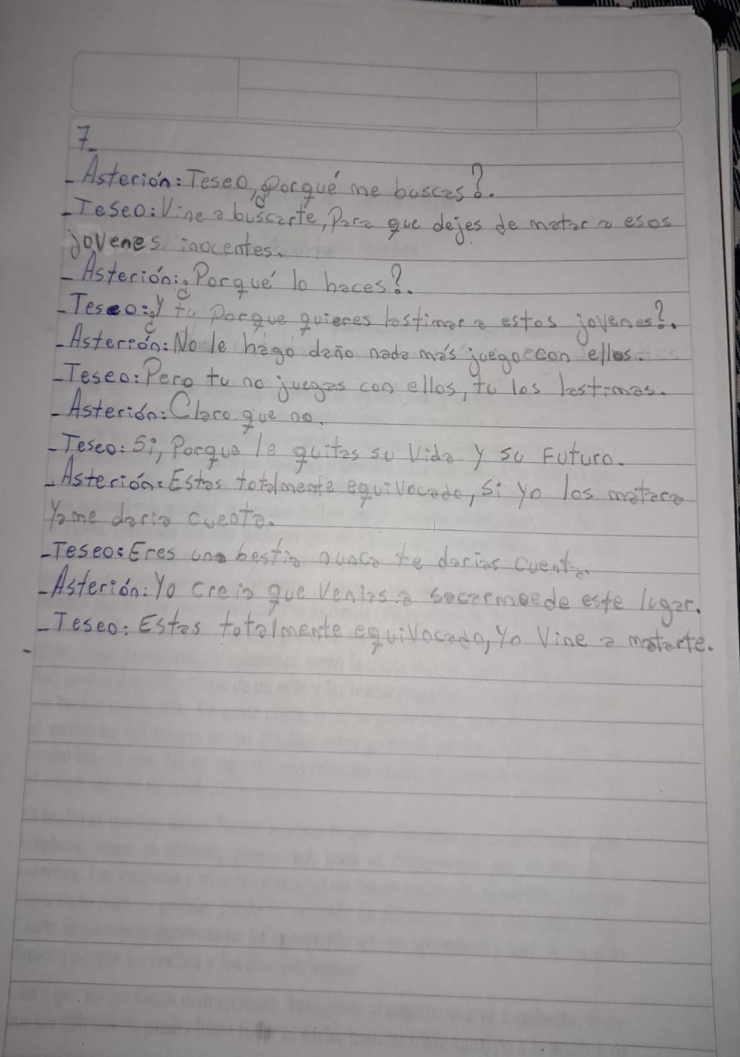 7_
- Asterión: Teseo, ¿porqué me buscas?.
- Teseo: Vine a buscarte, Para que dejes de matar a esos
jovenes inocentes.
- Asterión: ¿Porqué lo haces?.
- Teseo: ¿Y tu porque quieres lastimar a estos jovenes?.
- Asterión: No le hago daño nada más juego con ellos.
- Teseo: Pero tu no juegas con ellos, tu los lastimas.
- Asterión: Claro que no.
- Teseo: Si, Porque le quitas su Vida Y su Futuro.
- Asterión: Estas totalmente equivocado, si yo los matara
Ya me daria cuenta.
- Teseo: Eres una bestia nunca te darias cuenta.
- Asterión: Yo creia que Venias a sacarme de este lugar.
- Teseo: Estas totalmente equivocado, Yo Vine a matarte.
-